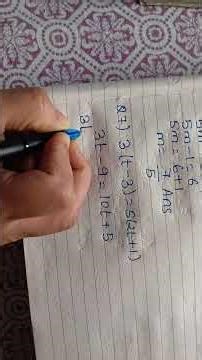 5m - 1 = 6
5m = 6+1
m = 7 Ans
5
Q7) 3(t-3) = 5(2t+1)
3t - 9 = 10t + 5
3t